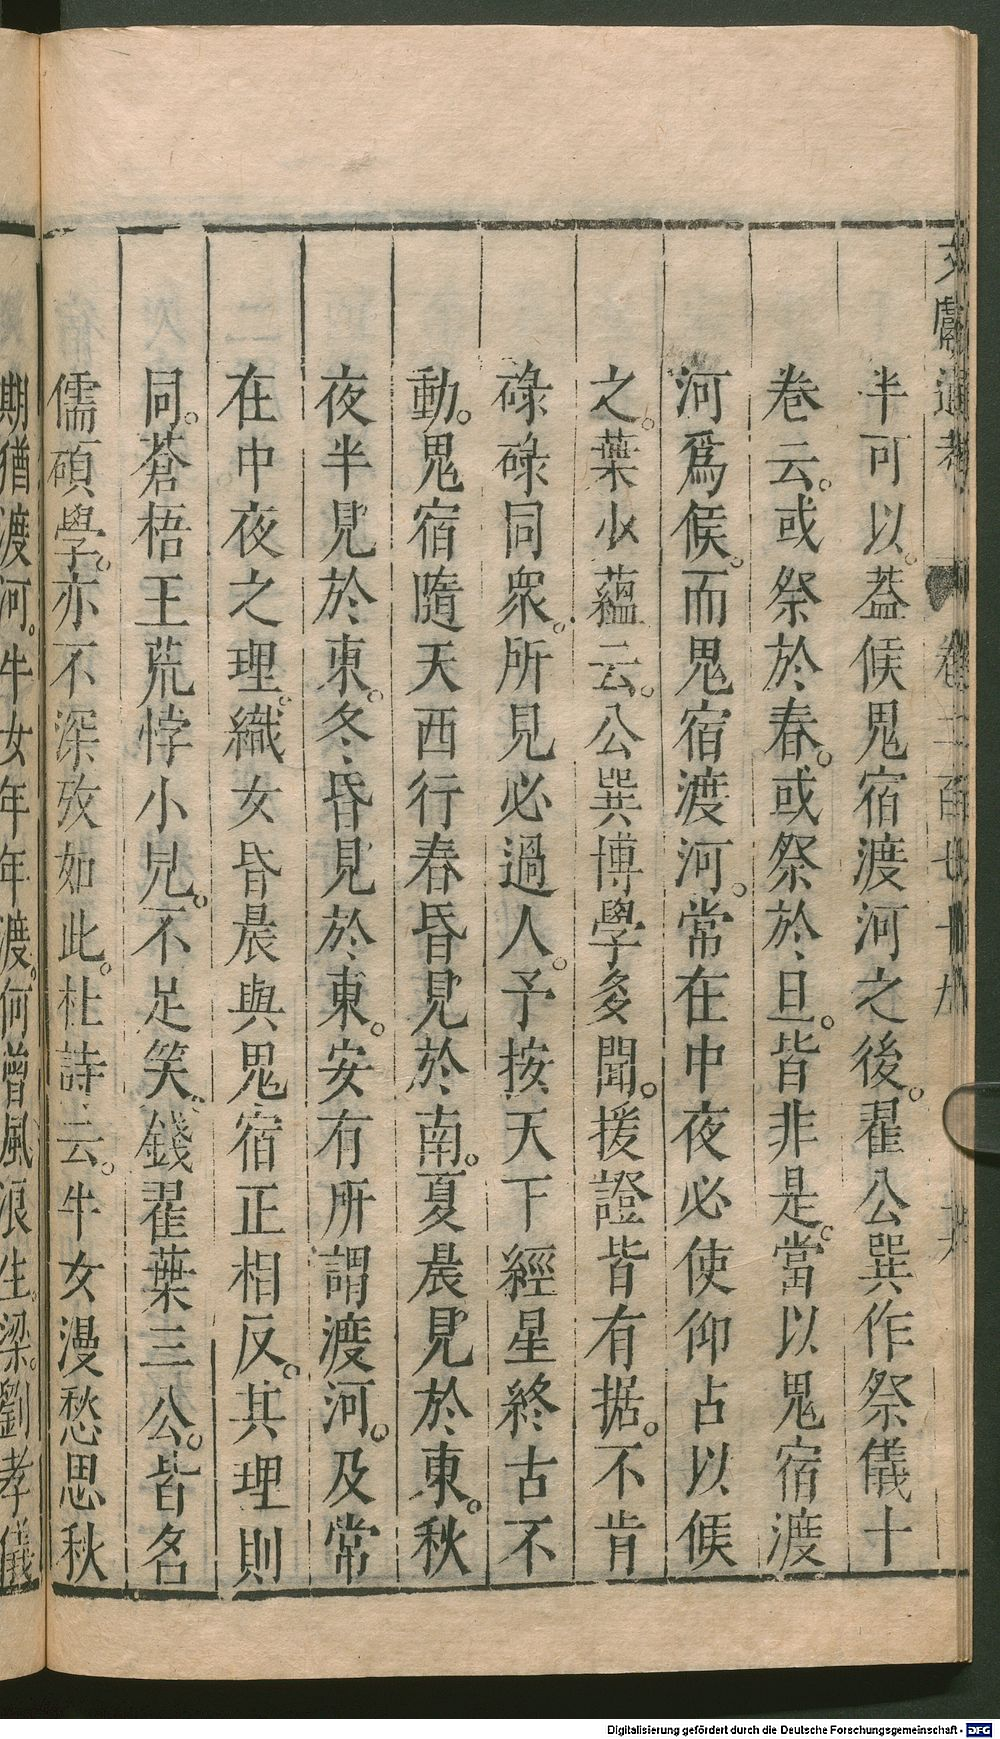 文獻通考 卷二百七十九
半可以。蓋候鬼宿渡河之後。翟公巽作祭儀十
卷云。或祭於春。或祭於旦。皆非是。當以鬼宿渡
河爲候。而鬼宿渡河。常在中夜必使仰占以候
之。葉少蘊云。公巽博學多聞。援證皆有据。不肯
碌碌同衆。所見必過人。予按天下經星終古不
動。鬼宿隨天西行春昏見於南。夏晨見於東。秋
夜半見於東。冬昏見於東。安有所謂渡河。及常
在中夜之理。織女昏晨與鬼宿正相反。其理則
同。蒼梧王荒悖小兒。不足笑。錢翟葉三公。皆名
儒碩學。亦不深攷如此。杜詩云。牛女漫愁思秋
期猶渡河。牛女年年渡。何曾風浪生。梁劉孝儀
Digitalisierung gefördert durch die Deutsche Forschungsgemeinschaft - DFG